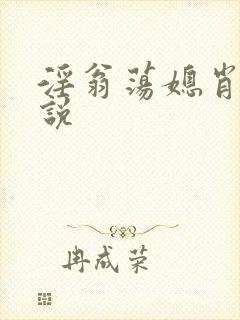 淫翁蕩媳肖
説
冉成荣